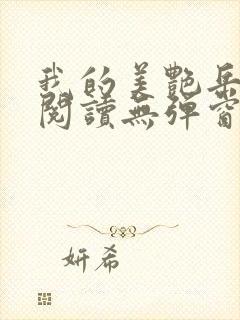 我的美艷岳
閱讀無彈窗
妍希